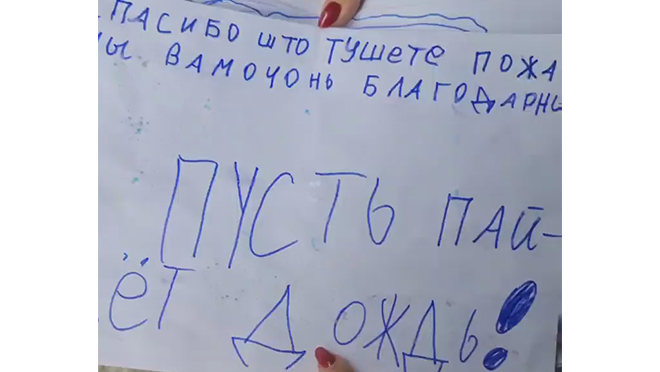 ПАСИБО ШТО ТУШЕТЕ ПОЖА
Ы ВАМОЧОНЬ БЛАГОДАРНЫ
ПУСТЬ ПАЙ-
ЁТ ДОЖДЬ!